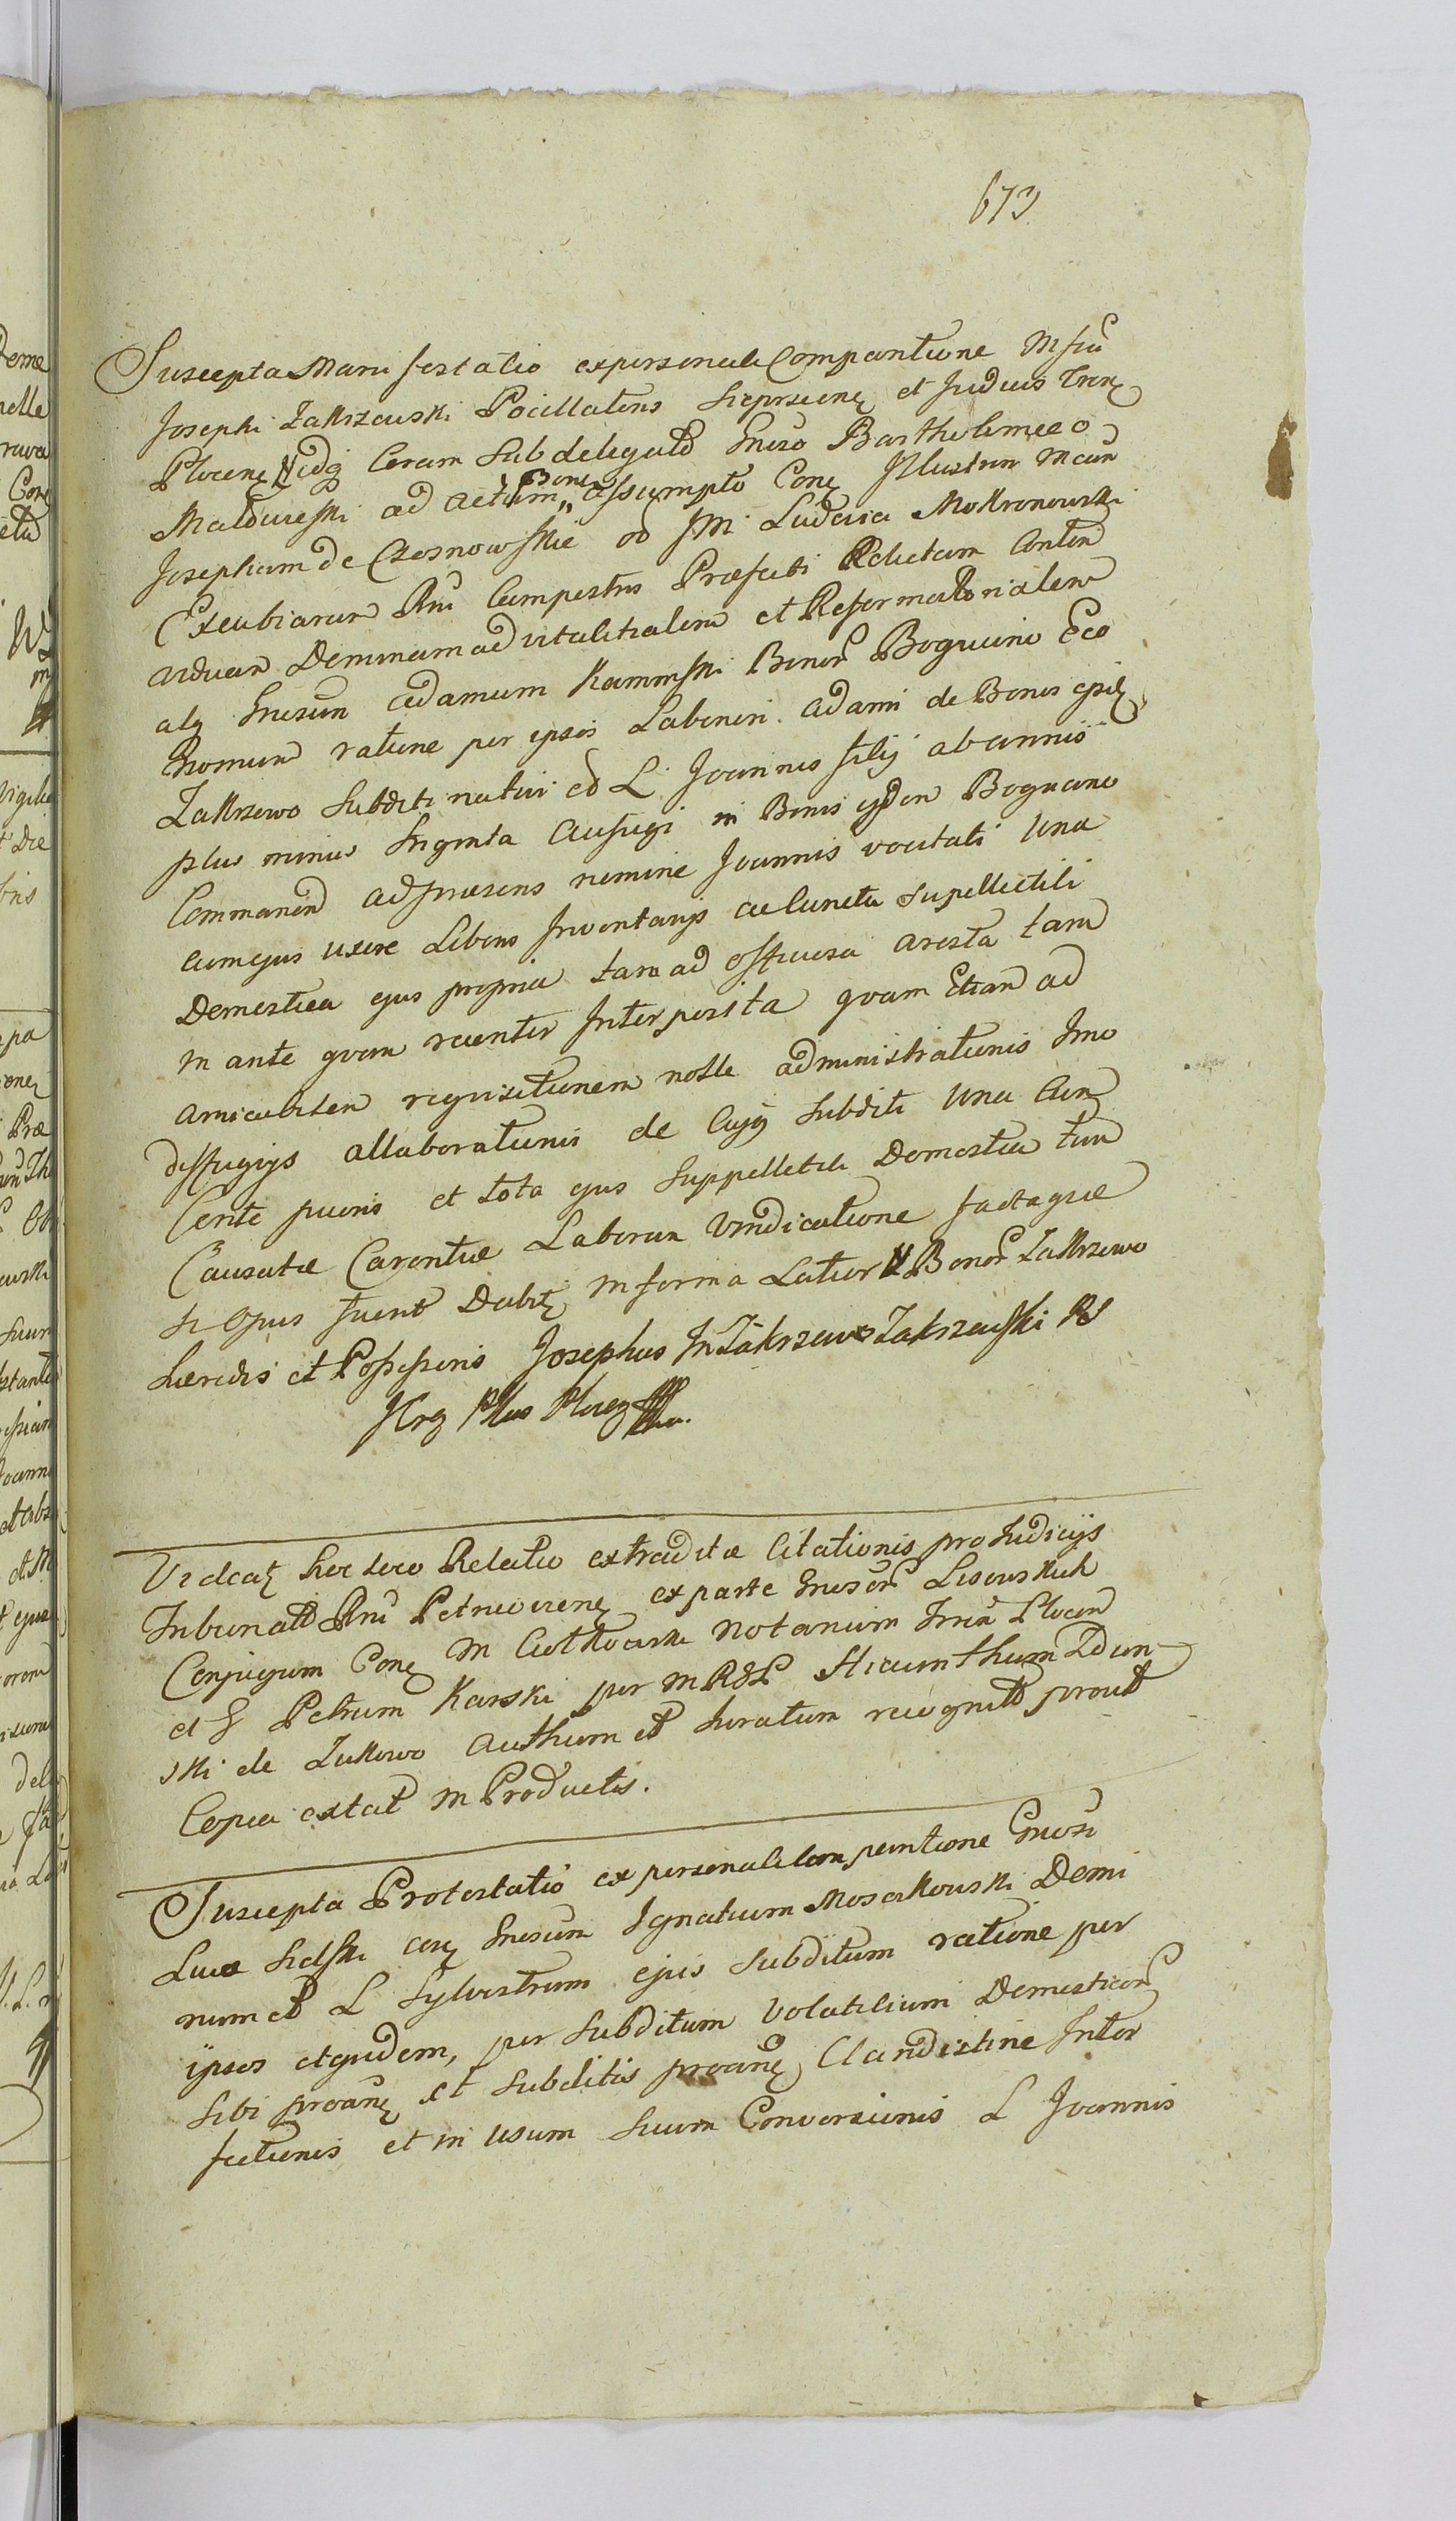 673
Suscepta Manifestatio ex personali Comparitione Mfici
Josephi Zakrzewski Pocillatoris Sieprscens et Judicis Tren
Plocens idq Coram Subdelegato Gneroso Bartholomeo
Maldureski ad actum Bone assumpto Cone Illustrem Mcum
Josepham de Czosnowskie od JM Ludovica Mokronowski
Excubiarum Rni Campestris Praefecti Relictam Conten
viduam Dominam advitalitialem et Reformatorialem
atq Gnrsum Adamum Kaminski Bonor Bogucino Eco
nomum ratione per ipsos Laboriosi Adami de Bonis ejusd
Zakrzewo Subditi nativi ed L Joannis filij ab annis
plus minus Triginta Aufugi in Bonis ijsdem Bogucino
Commanen ad praesens nomine Joannis vocitati Una
cum ejus uxore Liberis Inventarijs ac Cuncta Supellectili
Domestica ejus propria tam ad officiosa aresta tam
in ante quam recenter Interposita quam Etiam ad
amicabilem requisitionem nolle administrationis Imo
diffugijs allaborationis de Cujq Subditi Una Cum
Cente pueris et tota ejus Suppelletili Domestica tum
Causatae Carentiae Laborum Vindicatione factaque
si Opus fuerit Dabit in forma Latior Bonor Zakrzewo
Haeredis et Possessoris Josephus In Zakrzewo Zakrzewski PS
JTrz Pttus Plocen
Videat hoc loco Relatio extraditae Citationis pro Judicijs
Tribunalit Rni Petricoviens ex parte Gnrsor Lisowskich
Conjugum Cone M Cietkowski Notarium Trrm Plocen
et G Petrum Karski per MRSP Hiacinthum Zdun
ski de Zukowo Authum et Juratum recognit prout
Copia extat in Productis.
Suscepta Protestatio ex personali Comparitione Gnrosi
Lucae Sielski Cone Gnrsum Ignatium Mosakowski Domi
num et L Sylvestrum ejus Subditum ratione per
ipsos etquidem, per Subditum Volatilium Domesticor
Sibi proane et Subditis proane Clandistine Inter
fectionis et in usum Suum Conversionis L Joannis